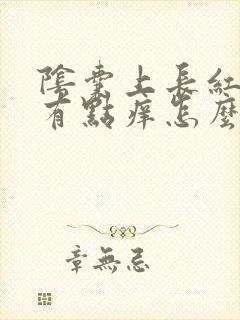 陰囊上長紅
有點痒怎麼
章無忌